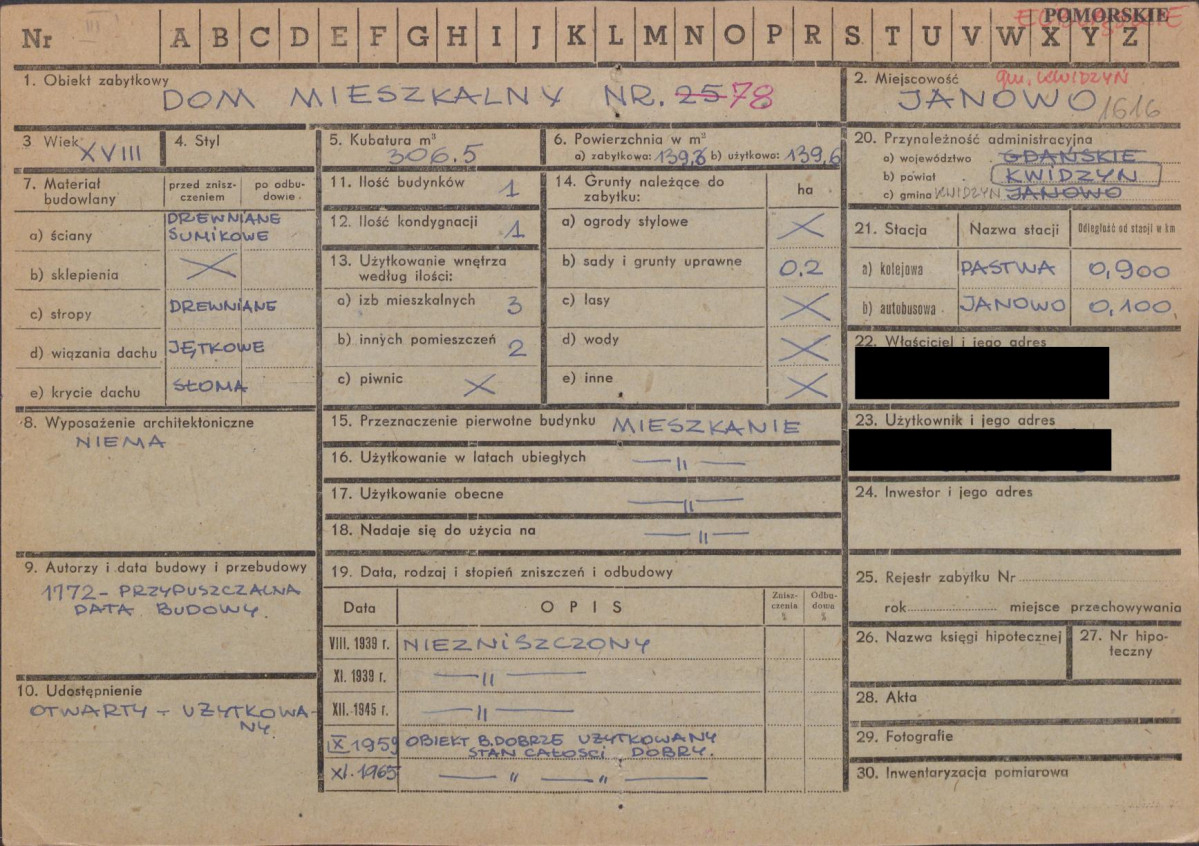 POMORSKIE
III
Nr A B C D E F G H I J K L M N O P R S T U V W X Y Z
1. Obiekt zabytkowy
DOM MIESZKALNY NR. 25 78
2. Miejscowość
gm. KWIDZYN
JANOWO 1616
3 Wiek XVIII
4. Styl
5. Kubatura m³
306.5
6. Powierzchnia w m²
a) zabytkowa: 139,6 b) użytkowo: 139,6
20. Przynależność administracyjna
a) województwo GDAŃSKIE
b) powiat KWIDZYN
c) gmina KWIDZYN JANOWO
7. Materiał budowlany
przed znisz-
czeniem
po odbu-
dowie.
a) ściany DREWNIANE
SUMIKOWE
b) sklepienia
c) stropy DREWNIANE
d) wiązania dachu JĘTKOWE
e) krycie dachu SŁOMA
11. Ilość budynków 1
12. Ilość kondygnacji 1
13. Użytkowanie wnętrza
według ilości:
a) izb mieszkalnych 3
b) innych pomieszczeń 2
c) piwnic
14. Grunty należące do
zabytku:
ha
a) ogrody stylowe
b) sady i grunty uprawne 0.2
c) lasy
d) wody
e) inne
21. Stacja Nazwa stacji Odległość od stacji w km
a) kolejowa PASTWA 0,900
b) autobusowa JANOWO 0,100
22. Właściciel i jego adres
23. Użytkownik i jego adres
24. Inwestor i jego adres
8. Wyposażenie architektoniczne
NIEMA
15. Przeznaczenie pierwotne budynku MIESZKANIE
16. Użytkowanie w latach ubiegłych — " —
17. Użytkowanie obecne — " —
18. Nadaje się do użycia na — " —
9. Autorzy i data budowy i przebudowy
1772 - PRZYPUSZCZALNA
DATA BUDOWY.
10. Udostępnienie
OTWARTY - UŻYTKOWA-
NY.
19. Data, rodzaj i stopień zniszczeń i odbudowy
Data OPIS
Znisz-
czenia
%
Odbu-
dowa
%
VIII. 1939 r. NIEZNISZCZONY
XI. 1939 r. — " —
XII. 1945 r. — " —
IX 1959 OBIEKT B.DOBRZE UŻYTKOWANY
STAN CAŁOŚCI DOBRY.
XI. 1965 — " — " —
25. Rejestr zabytku Nr
rok miejsce przechowywania
26. Nazwa księgi hipotecznej
27. Nr hipo-
teczny
28. Akta
29. Fotografie
30. Inwentaryzacja pomiarowa